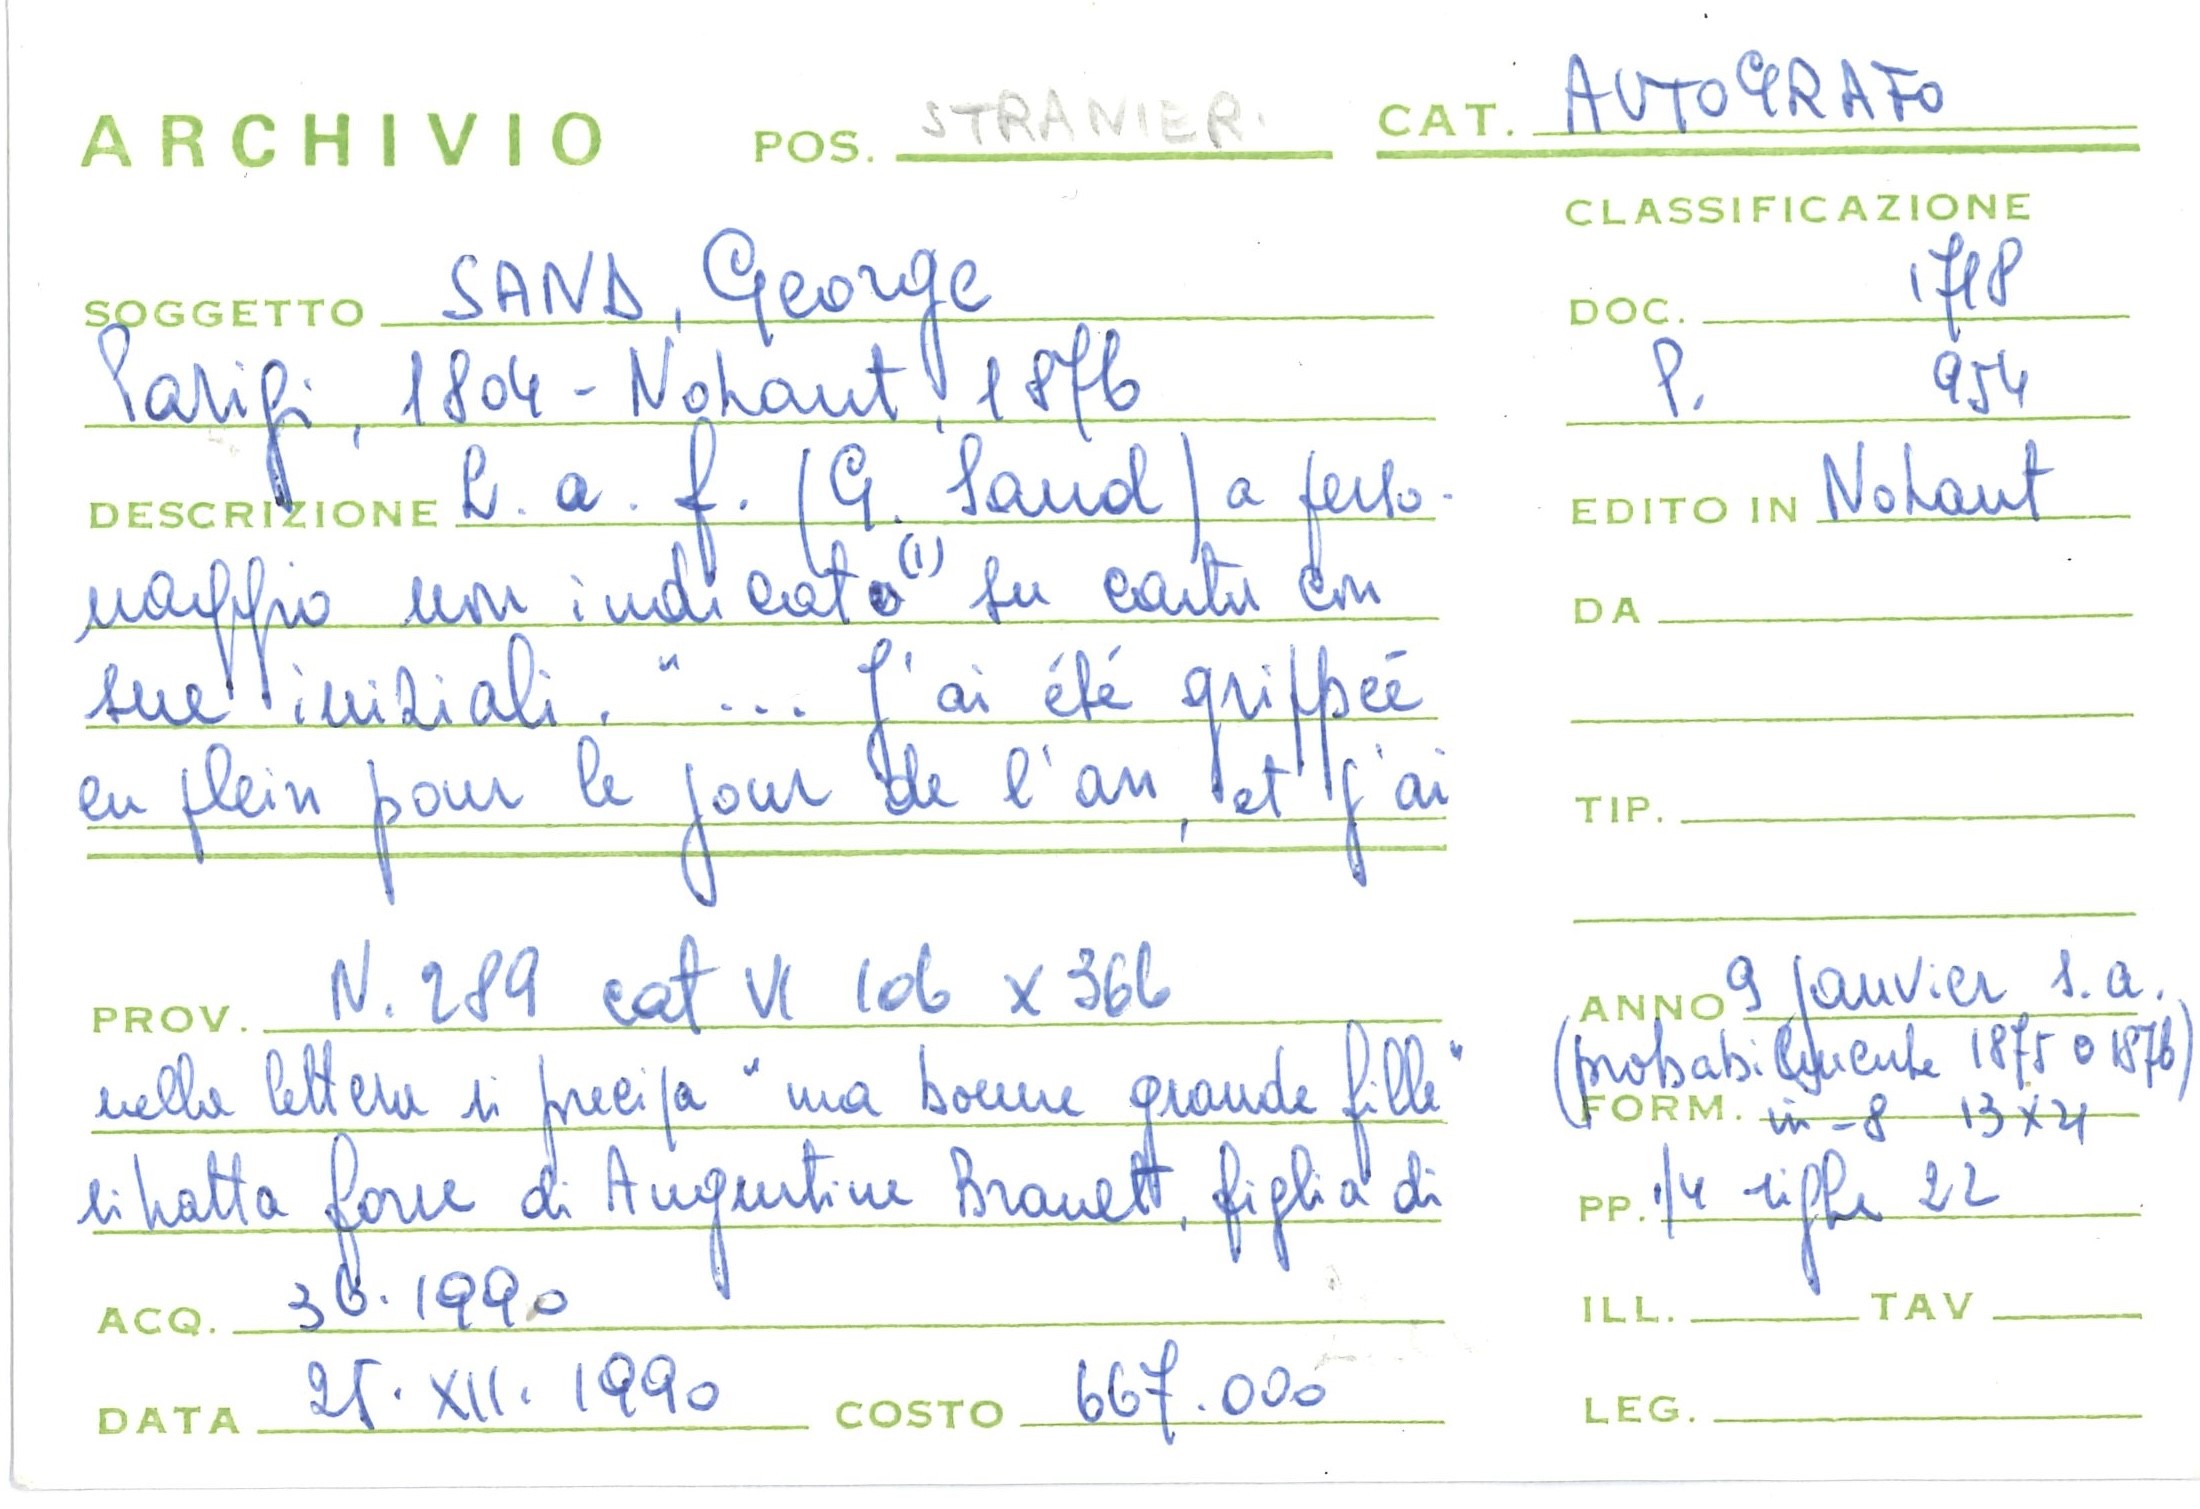 ARCHIVIO POS. STRANIERI CAT. AUTOGRAFO
CLASSIFICAZIONE
SOGGETTO SAND, George
Parigi, 1804 - Nohant, 1876
DESCRIZIONE L. a. f. (G. Sand) a perso-
naggio non indicato (1) su carta con
sue iniziali. "... J'ai été grippée
en plein pour le jour de l'an, et j'ai
DOC. 1718
P. 954
EDITO IN Nohant
DA
TIP.
PROV. N. 289 cat VI 106 x 366
nella lettera si precisa "ma bonne grande fille"
si tratta forse di Augustine Brault, figlia di
ACQ. 36.1990
DATA 25. XII. 1990 COSTO 667.000
ANNO 9 janvier s.a.
(probabilmente 1875 o 1876)
FORM. in-8 13x21
PP. 1/4 righe 22
ILL. TAV
LEG.